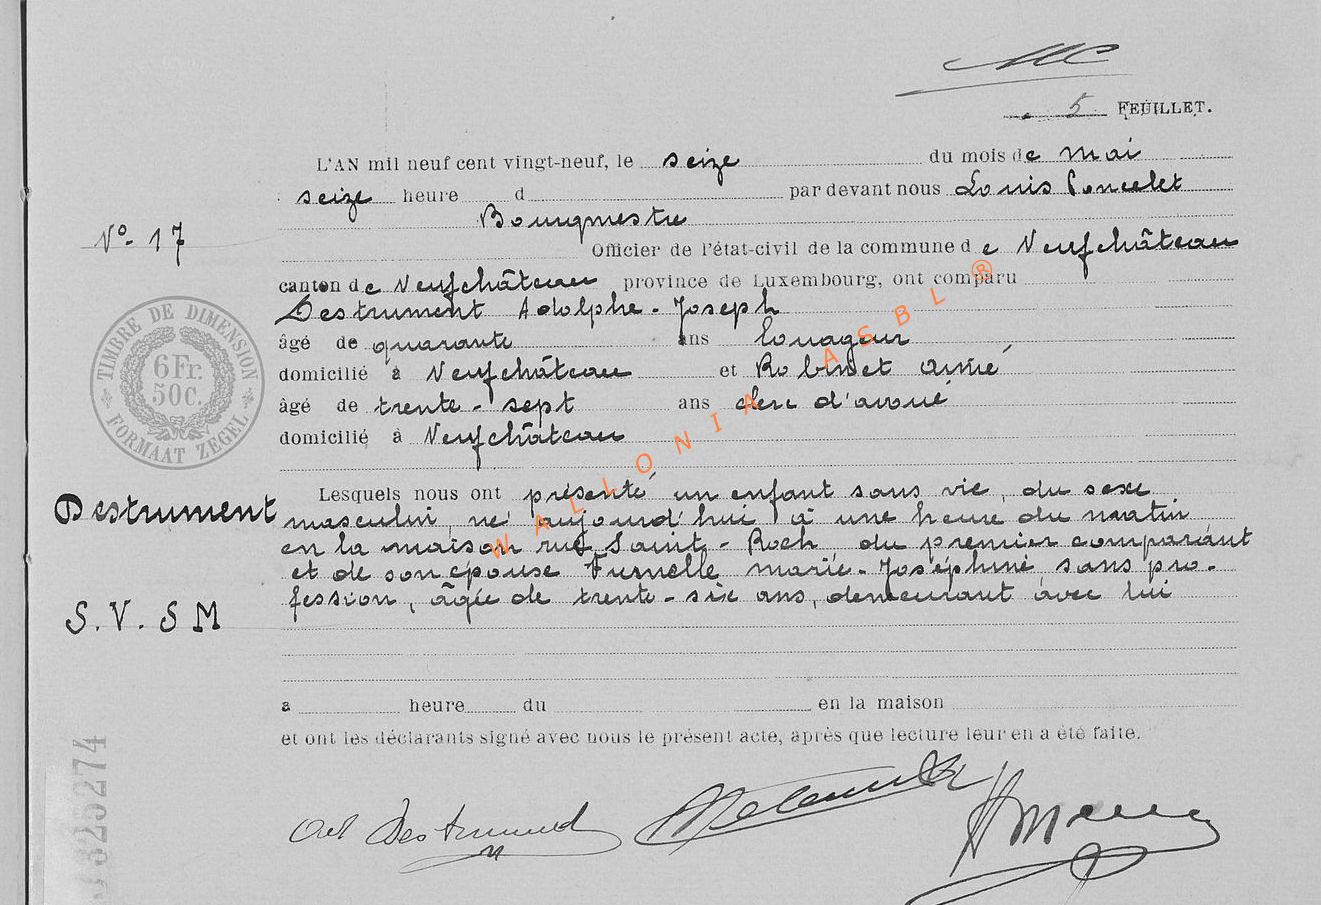 5 FEUILLET.
L'AN mil neuf cent vingt-neuf, le seize du mois de mai
seize heure d par devant nous Louis Poncelet
Bourgmestre
N° 17
Officier de l'état-civil de la commune de Neufchâteau
canton de Neufchâteau province de Luxembourg, ont comparu
Destrument Adolphe-Joseph
âgé de quarante ans louageur
domicilié à Neufchâteau et Robinet Aimé
âgé de trente-sept ans clerc d'avoué
domicilié à Neufchâteau
TIMBRE DE DIMENSION
6 Fr. 50c.
FORMAAT ZEGEL
Destrument
S.V. SM
Lesquels nous ont présenté un enfant sans vie, du sexe
masculin, né aujourd'hui à une heure du matin
en la maison rue Saint-Roch, du premier comparant
et de son épouse Furnelle Marie-Joséphine, sans pro-
fession, âgée de trente-six ans, demeurant avec lui
a heure du en la maison
et ont les déclarants signé avec nous le présent acte, après que lecture leur en a été faite.
Destrument
325274
WALLONIA ASBL ®